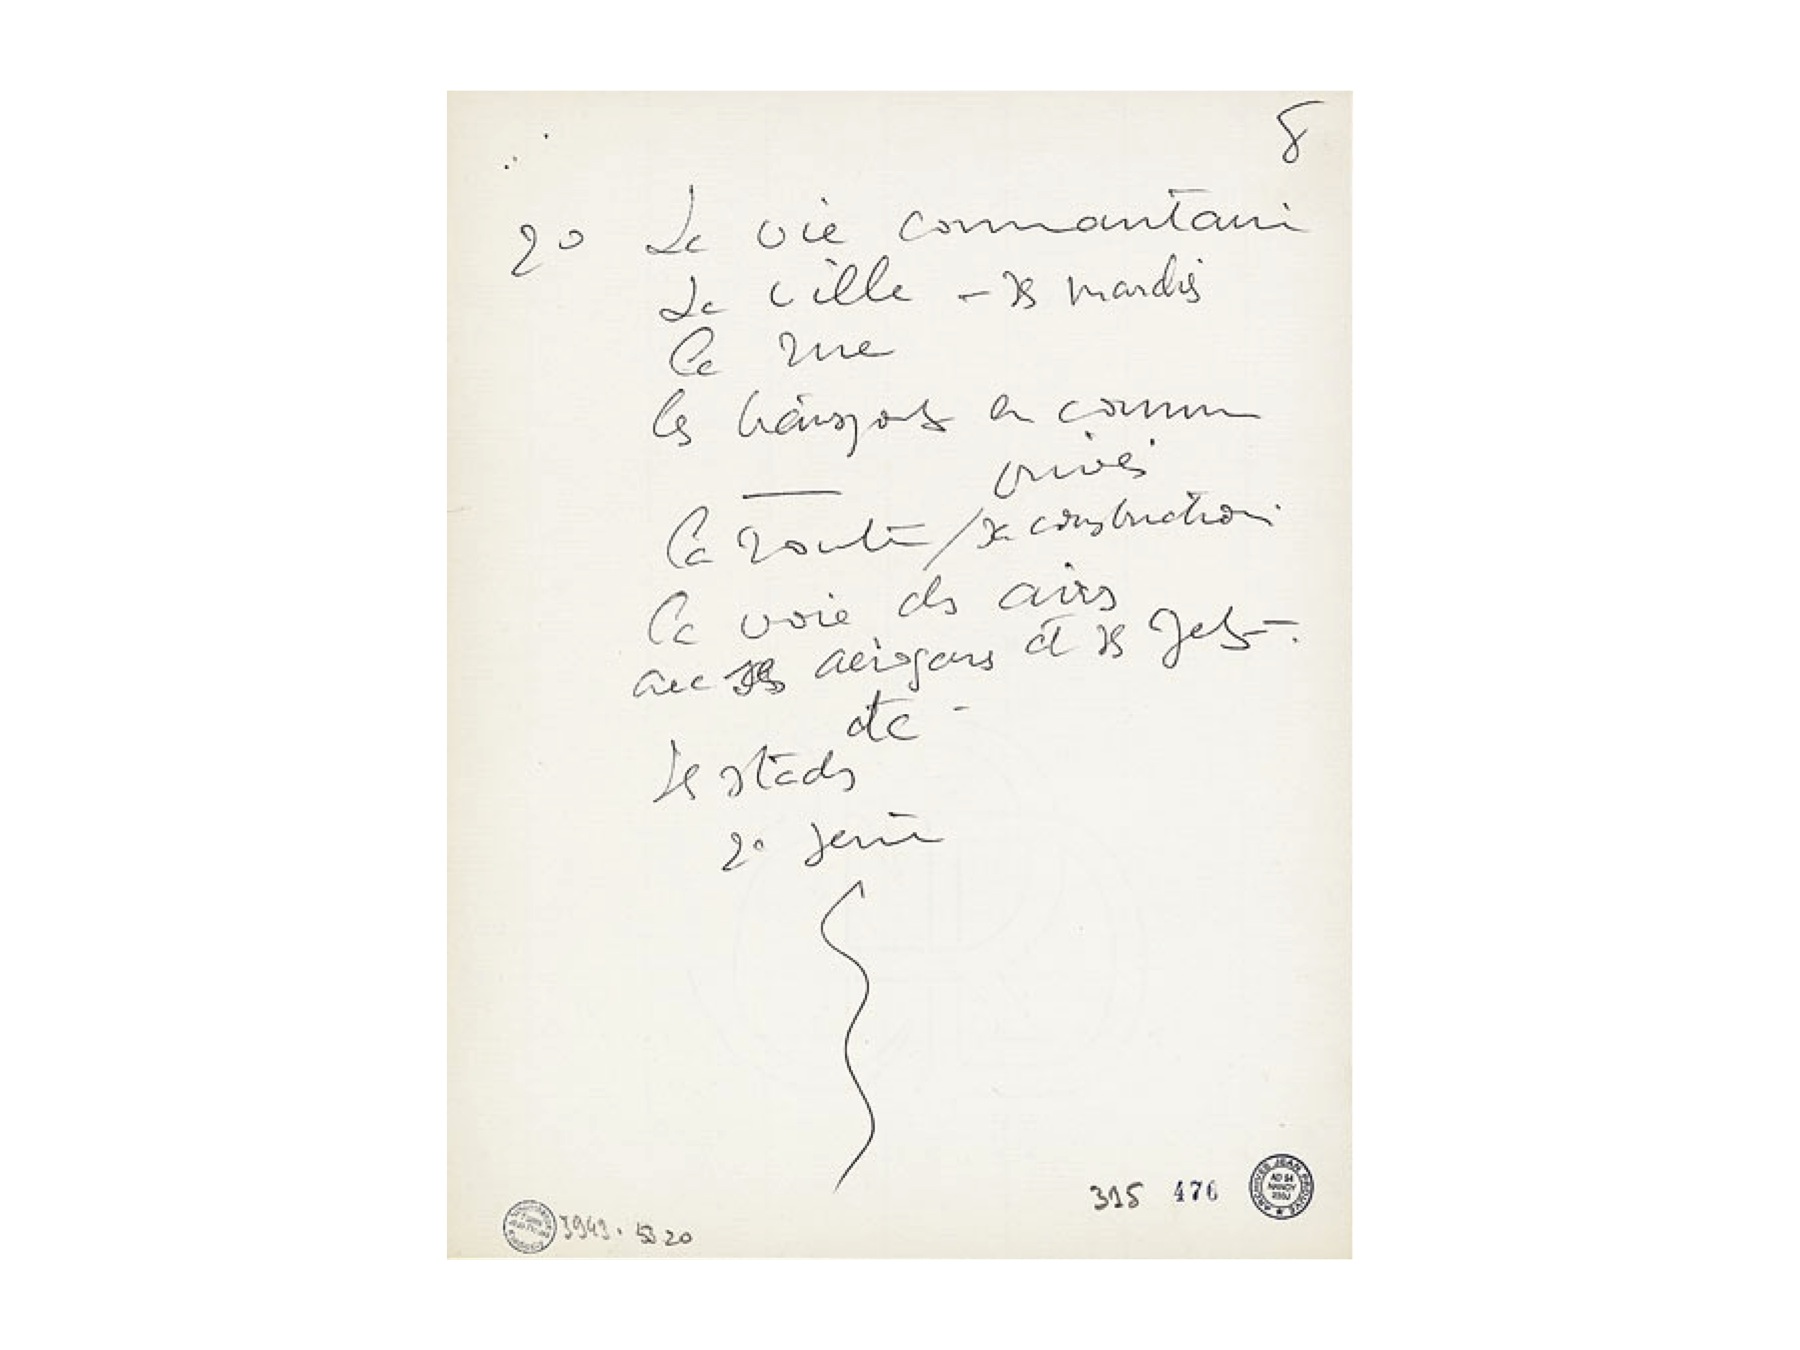 8
20 La vie communautaire
La ville - ses marchés
la rue
les transports en commun
privés
la route / sa construction
la voie des airs
avec ses aérogares et ses Jets.
etc -
Les stades
2° Série
315 476
ARCHIVES JEAN PROUVÉ
AD 54
NANCY
3949. 20